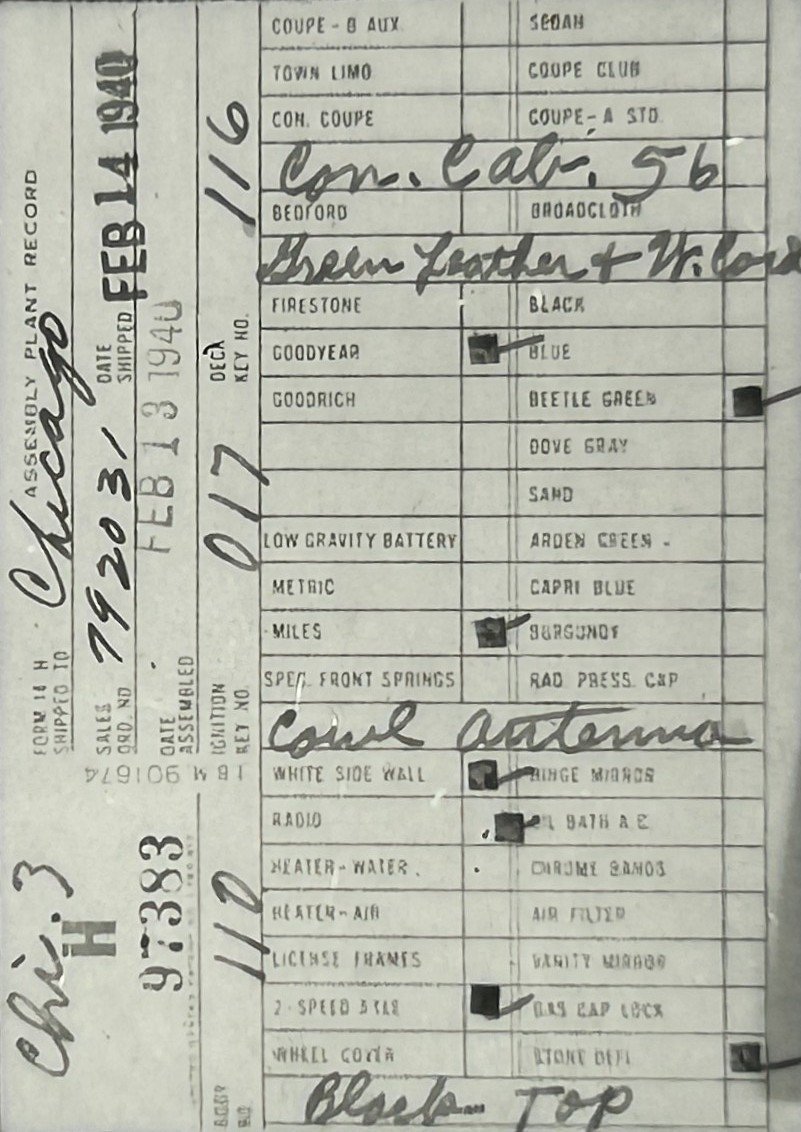 FORM 14 H ASSEMBLY PLANT RECORD
SHIPPED TO Chicago
SALES ORD. NO 792031
DATE SHIPPED FEB 14 1940
DATE ASSEMBLED FEB 13 1940
IGNITION KEY NO. 017
DECK KEY NO. 116
18 M 901674
Chi. 3
H
97383
BODY NO. 110
COUPE - B AUX. SEDAN
TOWN LIMO COUPE CLUB
CON. COUPE COUPE - A STD.
Con. Cab. 56
BEDFORD BROADCLOTH
Green Leather & W. Cord
FIRESTONE BLACK
GOODYEAR BLUE
GOODRICH BEETLE GREEN
DOVE GRAY
SAND
LOW GRAVITY BATTERY ARDEN GREEN
METRIC CAPRI BLUE
MILES BURGUNDY
SPEC. FRONT SPRINGS RAD PRESS. CAP
Cowl antenna
WHITE SIDE WALL HINGE MIRROR
RADIO OIL BATH A.C.
HEATER - WATER CHROME BANDS
HEATER - AIR AIR FILTER
LICENSE FRAMES VANITY MIRROR
2 - SPEED AXLE GAS CAP LOCK
WHEEL COVER STONE DEFL
Black Top